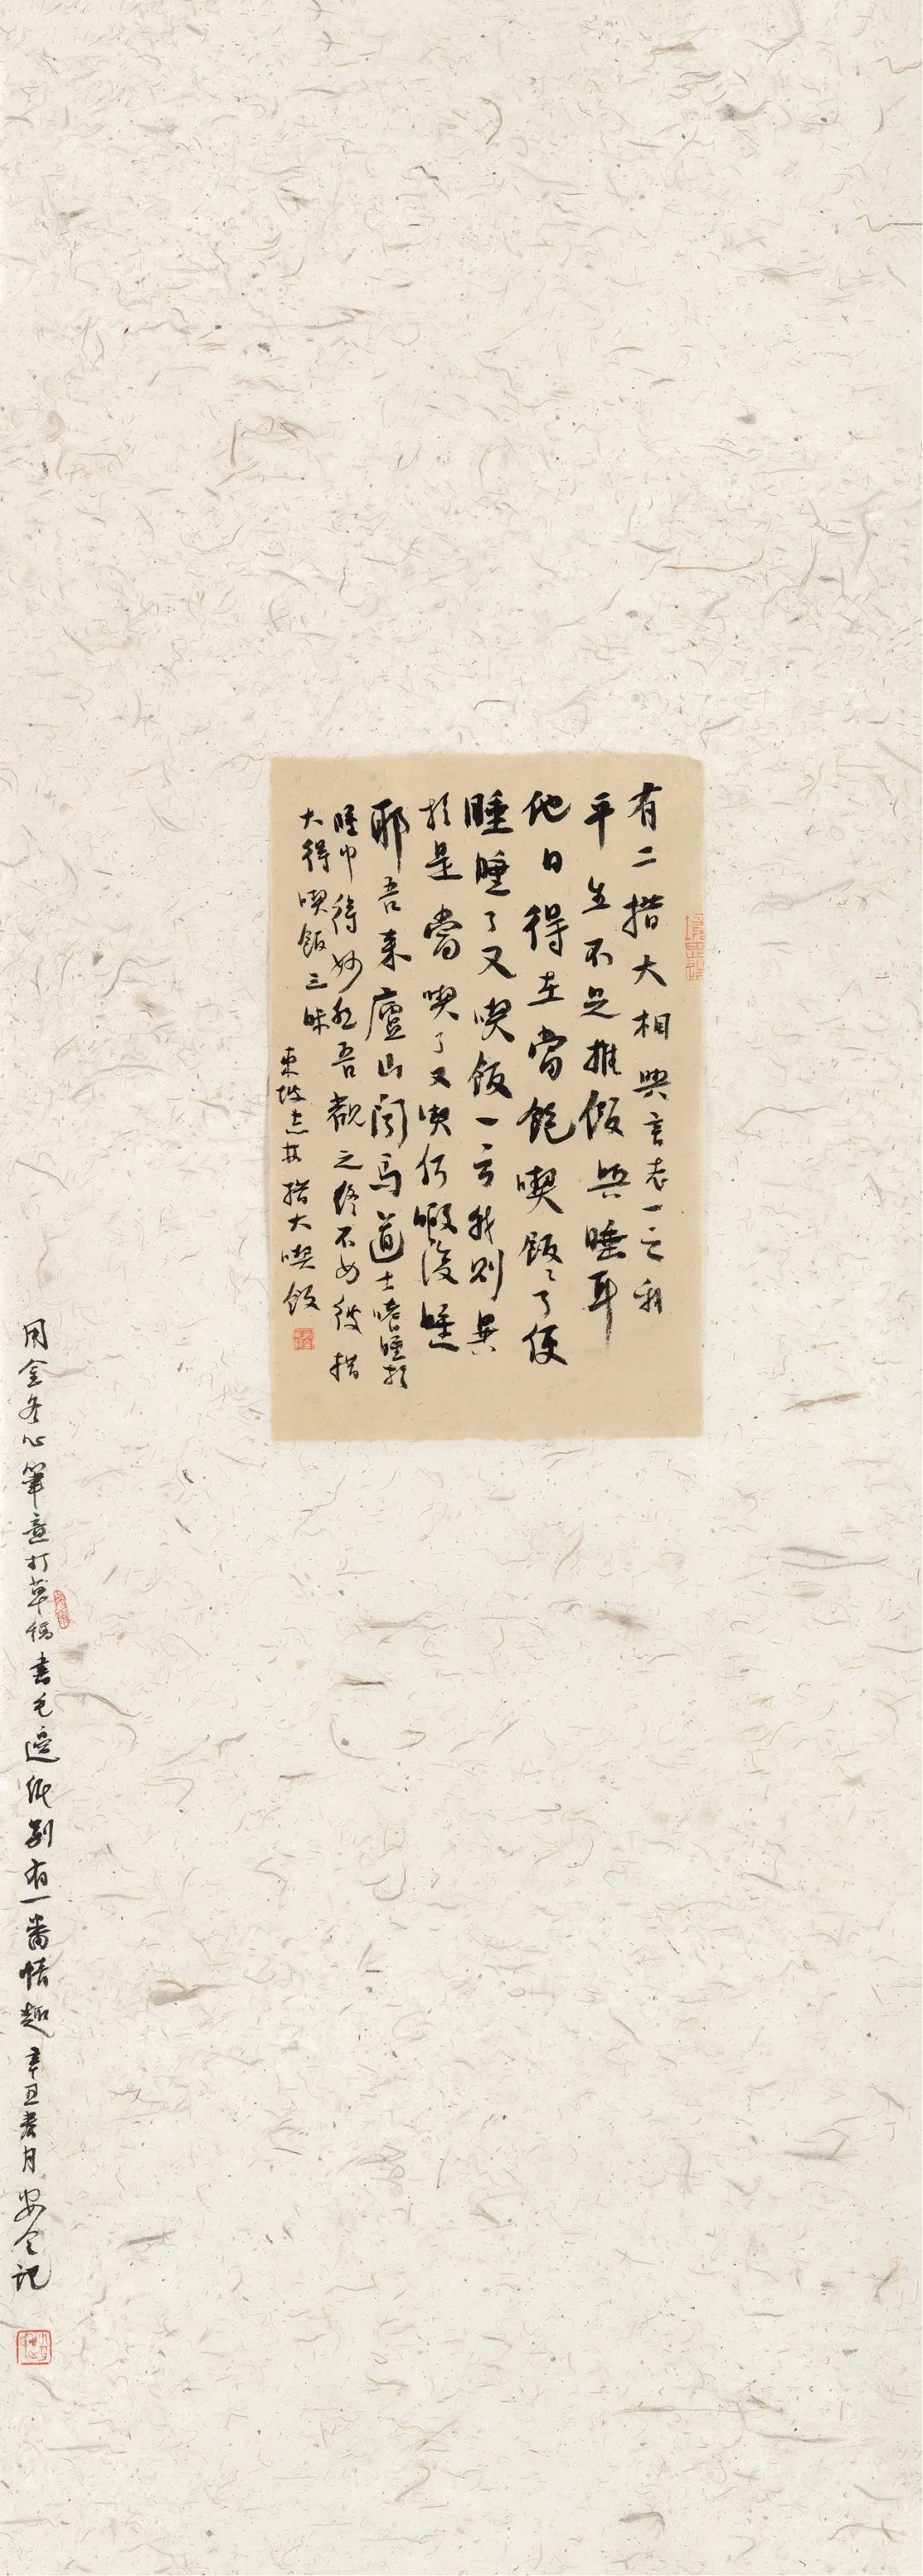 有二措大相與言志一云我
平生不足惟飯與睡耳
他日得志當飽喫飯飯了便
睡睡了又喫飯一云我則異
於是當喫了又喫何暇復睡
耶吾來廬山聞馬道士嗜睡於
睡中得妙然吾觀之終不如彼措
大得喫飯三昧
東坡志林措大喫飯
用金冬心筆意打草稿書毛邊紙別有一番情趣辛丑春月安金記